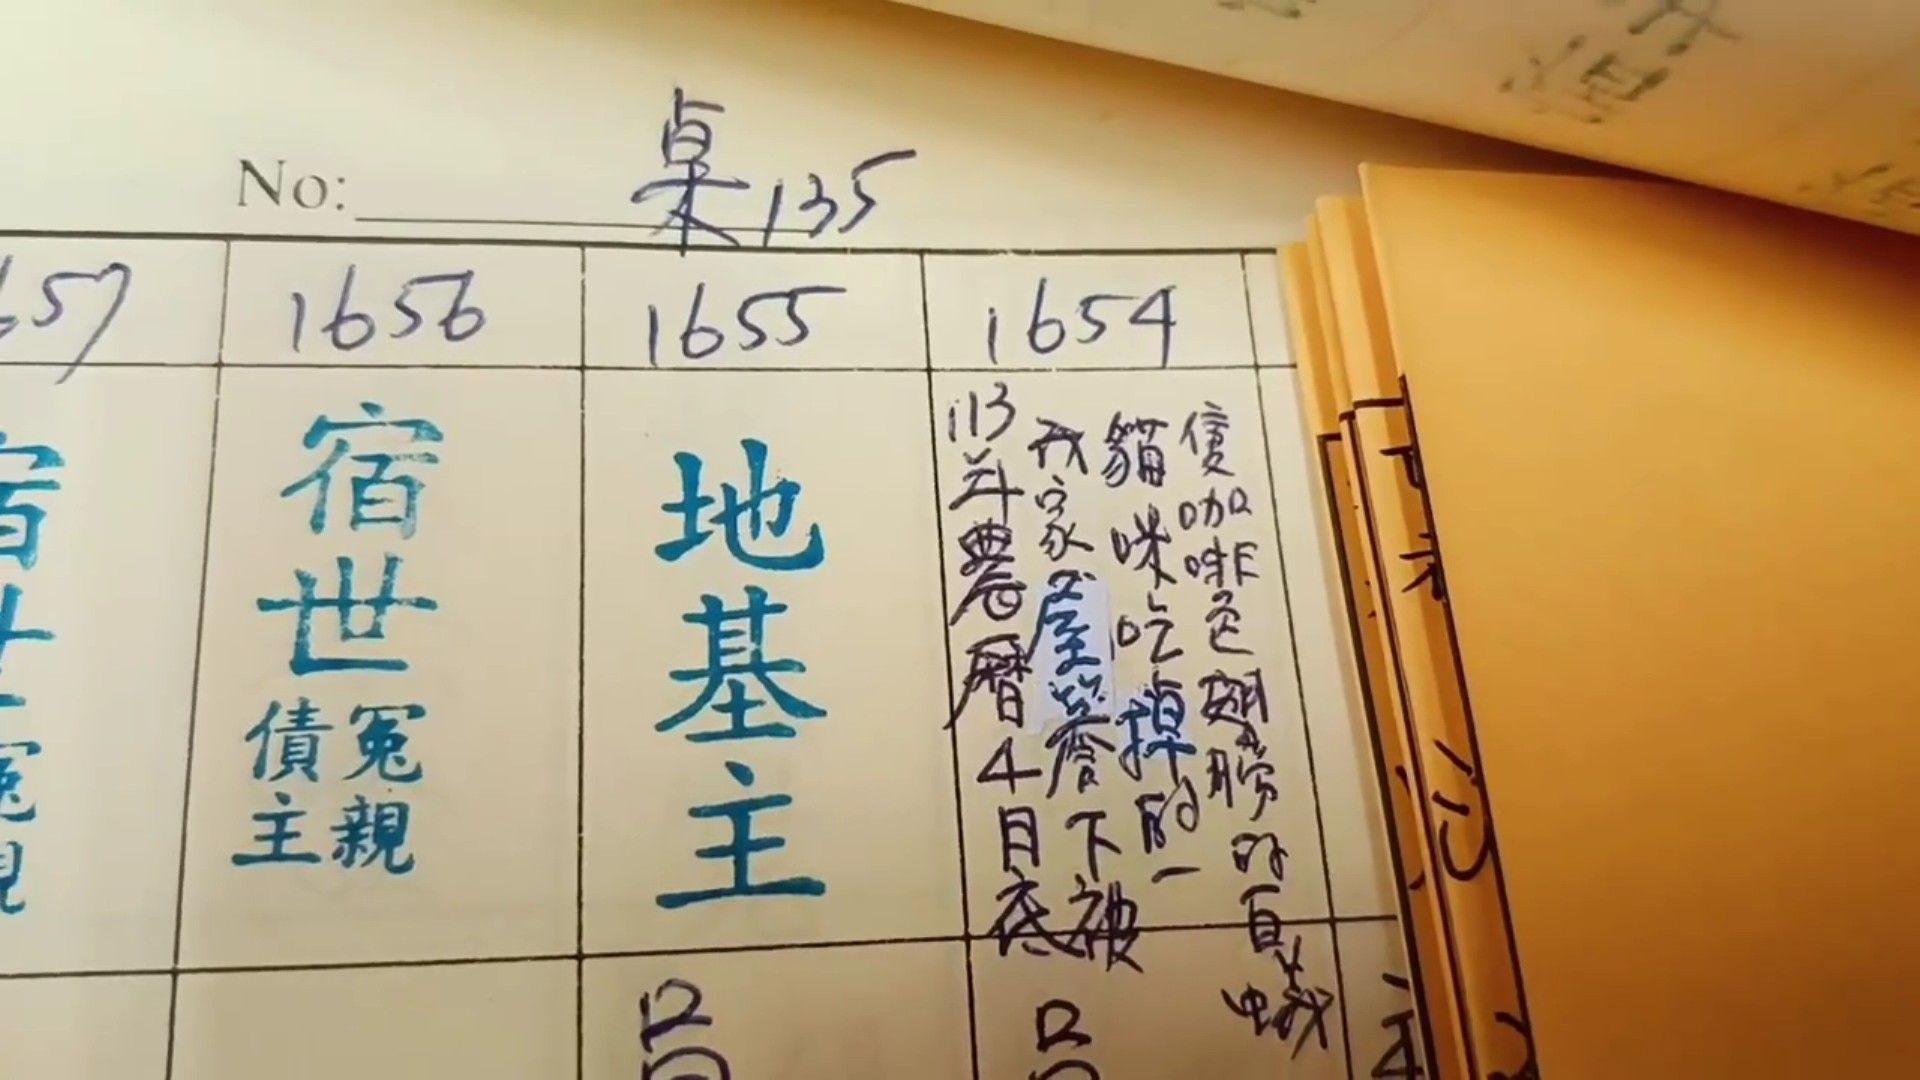 No: 桌135
1654
113年農曆4月底
我家屋簷下被
貓咪吃掉的一
隻咖啡色翅膀的
1655
地基主
1656
宿世
冤親
債主
657
冤親